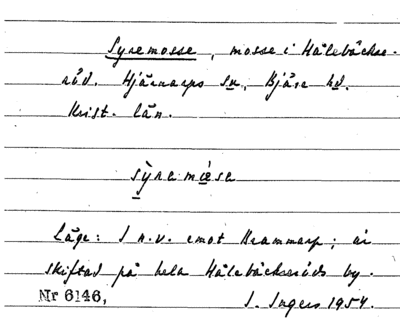 Syremosse, mosse i Hålebäckse-
röd. Hjärnarps sn, Bjäre hd.
Krist. län.
sỳre mòse
Läge: I n.v. emot Brammarp; är
skiftad på hela Hålebäckseröds by.
Nr 6146, I. Ingers 1954.